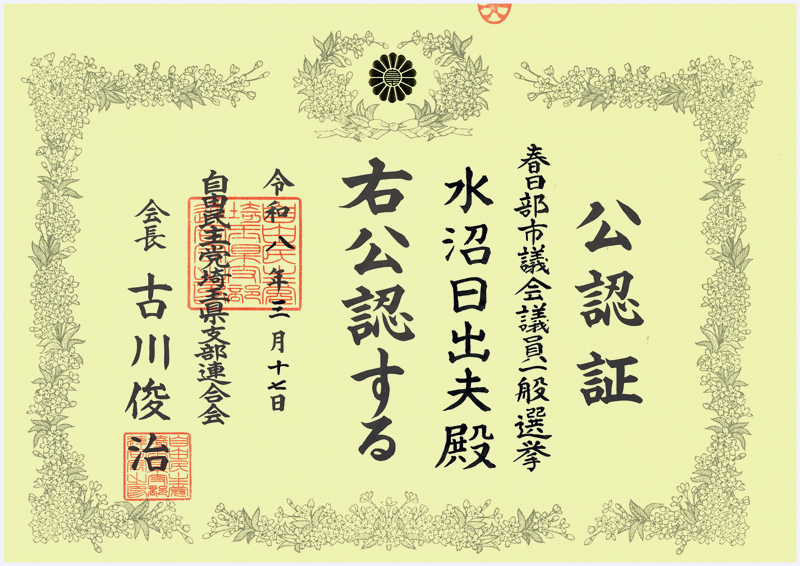 公認証
春日部市議会議員一般選挙
水沼日出夫殿
右公認する
令和八年三月十七日
自由民主党埼玉県支部連合会
会長 古川俊治